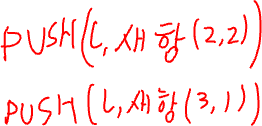 PUSH(L, 새항(2,2))
PUSH(L, 새항(3,1))